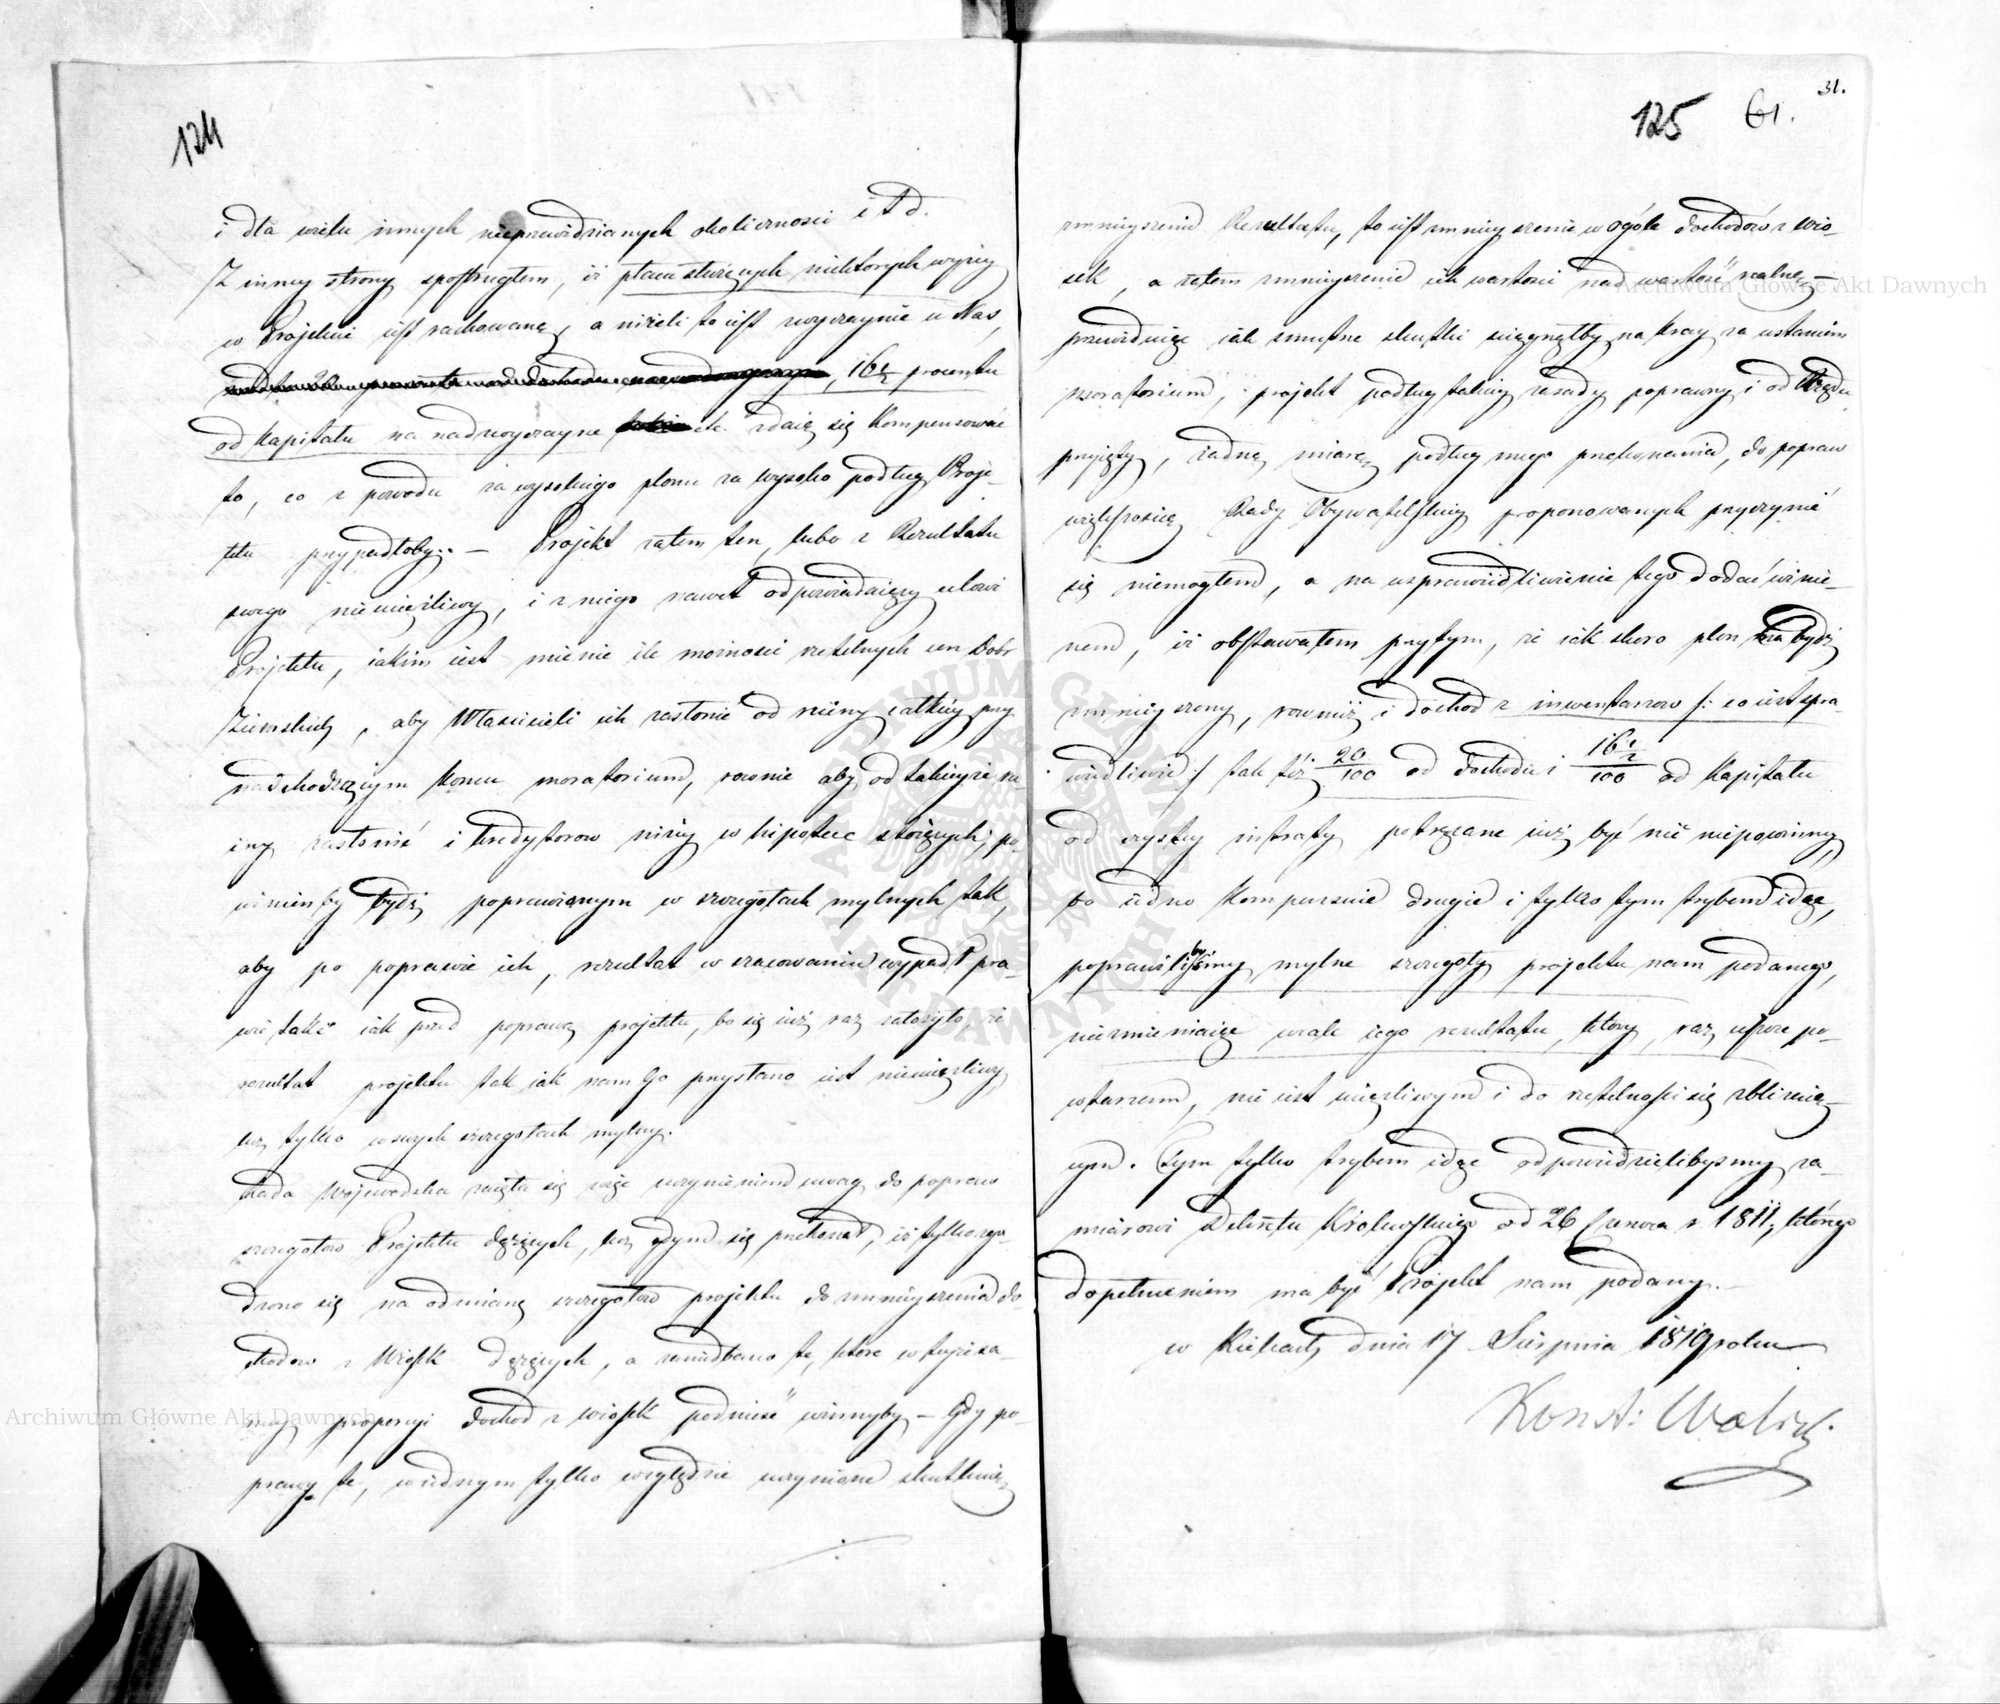 124
i dla wielu innych nieprzewidzianych okoliczności i t d.
Z inney strony spostrzegłem, iż płaca służących niektorych wyżey
w Projekcie iest rachowaną, a niżeli to iest zwyczaynie u Nas,
16 1/2 procentu
od kapitału na nadzwyczayne etc. zdaią się kompensować
to, co z powodu za wysokiego plonu za wysoko podług Proje-
ktu przypadłoby. – Projekt zatem ten, lubo z Rezultatu
swego nieuciążliwy, i z niego nawet odpowiadaiący celowi
Projektu, iakim iest mienie ile możności rzetelnych cen Dobr
Ziemskich, aby Właścicieli ich zasłonić od ruiny całkiey przy
nadchodzącym końcu moratorium, rownie aby od takieyże ru-
iny zasłonić i kredytorow niżey w hipotece stoiących; po-
winienby bydź poprawionym w szczegołach mylnych tak,
aby po poprawie ich, rezultat w szacowaniu wypadł pra-
wie taki iak przed poprawą projektu, bo się iuż raz założyło, że
rezultat projektu tak iak nam Go przysłano iest nieuciążliwy,
lecz tylko w swych szczegołach mylny.
Rada Woiewodzka zaięła się więc uczynieniem uwag do popraw
szczegołow Projektu dążących, lecz gdym się przekonał, iż tylko zgo-
dzono się na odmianę szczegołow projektu do zmnieyszenia do-
chodow z Wiosek dążących, a zaniedbano te, które w teyże sa-
mey proporcyi dochod z wiosek podnieść winnyby – Gdy po-
prawy te, w iednym tylko względzie uczynione skutkuią
125 61. 31.
zmnieyszenie Rezultatu, to iest zmnieyszenie w ogóle dochodów z Wio-
sek, a zatem zmnieyszenie ich wartości nad wartość realną –
przewiduiąc iak smutne skutki sięgnęłby na kray za ustaniem
moratorium, projekt podług takiey zasady poprawny i od Rządu
przyięty, żadną miarą podług mego przekonania, do popraw
większością Rady Obywatelskiey proponowanych przyczynić
się niemogłem, a na usprawiedliwienie tego dodać winie-
nem, iż obstawałem przytym, że iak skoro plon ma bydź
zmnieyszony, rownież i dochod z inwentarzow /: co iest spra-
wiedliwie :/ tak też 20/100 od dochodu i 16 1/2/100 od kapitału
od czystey intraty potrącane iuż być nie niepowinny,
bo iedno kompensuie drugie i tylko tym trybem idąc,
poprawilibyśmy mylne szczegoły projektu nam podanego,
niezmieniaiąc wcale iego rezultatu, ktory, raz ieszcze po-
wtarzam, nie iest uciążliwym i do rzetelności się zbliżaią-
cym. Tym tylko trybem idąc odpowiedzielibyśmy za-
miarowi Dekretu Królewskiego od 26 Czerwca r 1811, którego
dopełnieniem ma być Projekt nam podany. –
w Kielcach dnia 17 Sierpnia 1819 roku
Konst:
Archiwum Główne Akt Dawnych
Archiwum Główne Akt Dawnych
ARCHIWUM GŁÓWNE AKT DAWNYCH